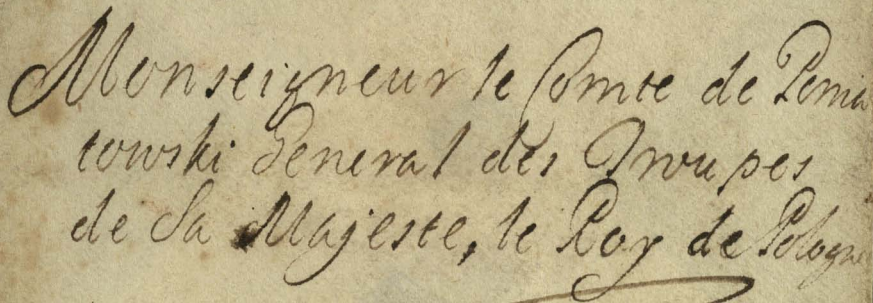 Monseigneur le Comte de Ponia
towski General des Troupes
de Sa Majeste, le Roy de Pologne